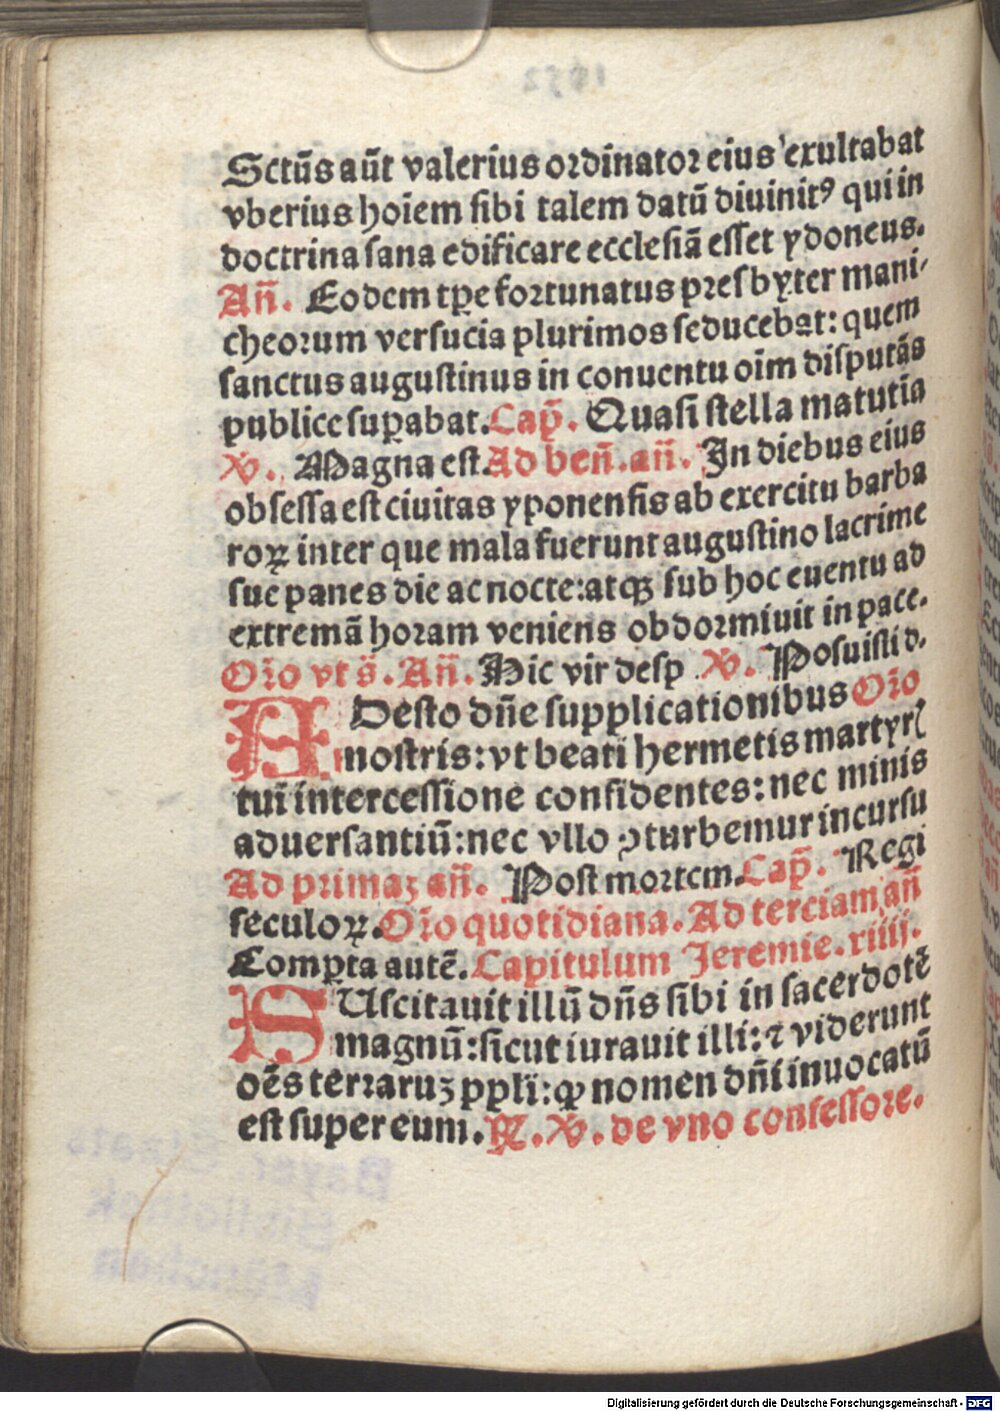 Sctūs aūt valerius ordinator eius exultabat
vberius hoīem sibi talem datū diuinitꝰ qui in
doctrina sana edificare ecclesiā esset ydoneus.
An̄. Eodem tp̄e fortunatus presbyter mani-
cheorum versucia plurimos seducebat: quem
sanctus augustinus in conuentu oīm disputās
publice suꝑabat. Cap̄. Quasi stella matutīa
℣. Magna est. Ad ben̄. an̄. In diebus eius
obsessa est ciuitas yponensis ab exercitu barba
roꝝ inter que mala fuerunt augustino lacrime
sue panes die ac nocte: atqꝫ sub hoc euentu ad
extremā horam veniens obdormiuit in pace.
Or̄o vt s̄. An̄. Hic vir desp ℣. Posuisti d.
ADesto dn̄e supplicationibus Or̄o
nostris: vt beati hermetis martyrꝭ
tui intercessione confidentes: nec minis
aduersantiū: nec vllo ꝯturbemur incursu
Ad primaꝫ an̄. Post mortem. Cap̄. Regi
seculoꝝ. Or̄o quotidiana. Ad terciam an̄
Comꝑta autē. Capitulum Jeremie. xiiij.
SUscitauit illū dn̄s sibi in sacerdotē
magnū: sicut iurauit illi: ⁊ viderunt
oēs terraruꝫ ppl̄i: ꝙ nomen dn̄i inuocatū
est super eum. ℟. ℣. de vno confessore.
1052
Bayer. Staats
Bibliothek
München
Digitalisierung gefördert durch die Deutsche Forschungsgemeinschaft - DFG